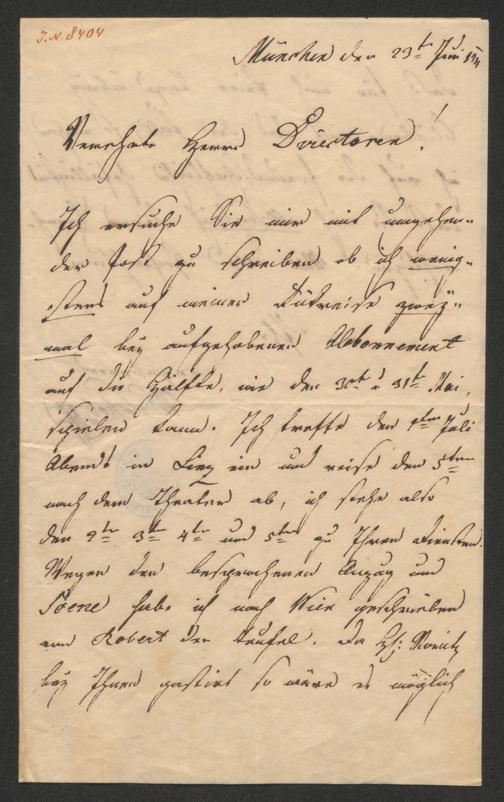 I.N. 8404
München den 23t Juni
Verehrte Herrn Directoren!
Ich ersuche Sie mir mit umgehen-
der Post zu schreiben ob ich wenig-
stens auf meiner Rükreise zwey-
mal bey aufgehobenen Abonnement
auf die Hälfte, wie den 30t u 31t Mai,
spielen kann. Ich treffe den 1ten Juli
Abends in Linz ein und reise den 5ten
nach dem Theater ab, ich stehe also
den 2ten 3ten 4ten und 5ten zu Ihren Diensten.
Wegen den besprochenen Anzug und
Scene habe ich nach Wien geschrieben
von Robert der Teufel. Da H: Moritz
bey Ihnen gastirt so wäre es möglich